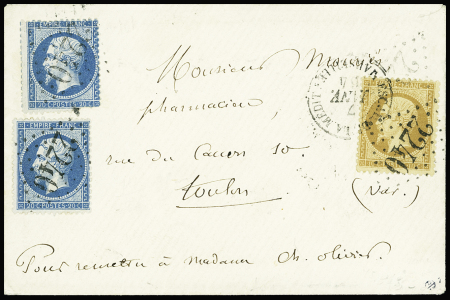 EMPIRE FRANC
20 C POSTES 20 C
EMPIRE FRANC
20 C POSTES 20 C
2240
2240
Monsieur
pharmacien,
rue du Canon 10.
Toulon
(Var.)
Pour remettre à madame Ch. Olivier.